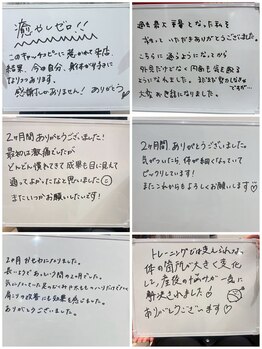 癒やしゼロ!!
このキャッチコピーに惹かれて来店
結果、今の自分、解本が好きに
なりつつあります。
感謝しかありません! ありがとう
過去最大 事態となった私を
救っていただきありがとうございました。
こちらに通うようになってから
外見だけでなく内面も変え
ようになれました。
大変お世話になりました。
2ヶ月間ありがとうございました!
最初は激痛でしたが
どんどん慣れてきて成果も目に見えて
通ってよかったなと思いました
またいつかお願いしたいです!
2ヶ月間、ありがとうございます。
気がついたら体が細くなっていて
びっくりしています!
またこれからもよろしくお願いします
2ヶ月おせわになりました。
長いようであっという間の2ヶ月でした。
肩こりの改善にも効果を感じました。
ありがとうございました。
トレーニングでは変えられない
体の箇所が大きく変化
し、産後の悩みが一気に
解決されました
ありがとうございます